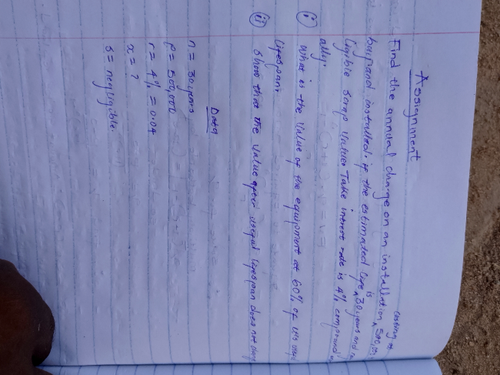 Assignment
Find the annual charge on an installation costing
buipand installed, if the estimated life is 30 years and
ligible scrap value. Take interest rate is 4% compound
ally.
i What is the value of the equipment at 60% of its
lifespan
ii Show that the value after useful lifespan does not
Data
n = 30 years
P = 500,000
r = 4% = 0.04
x = ?
s = negligible